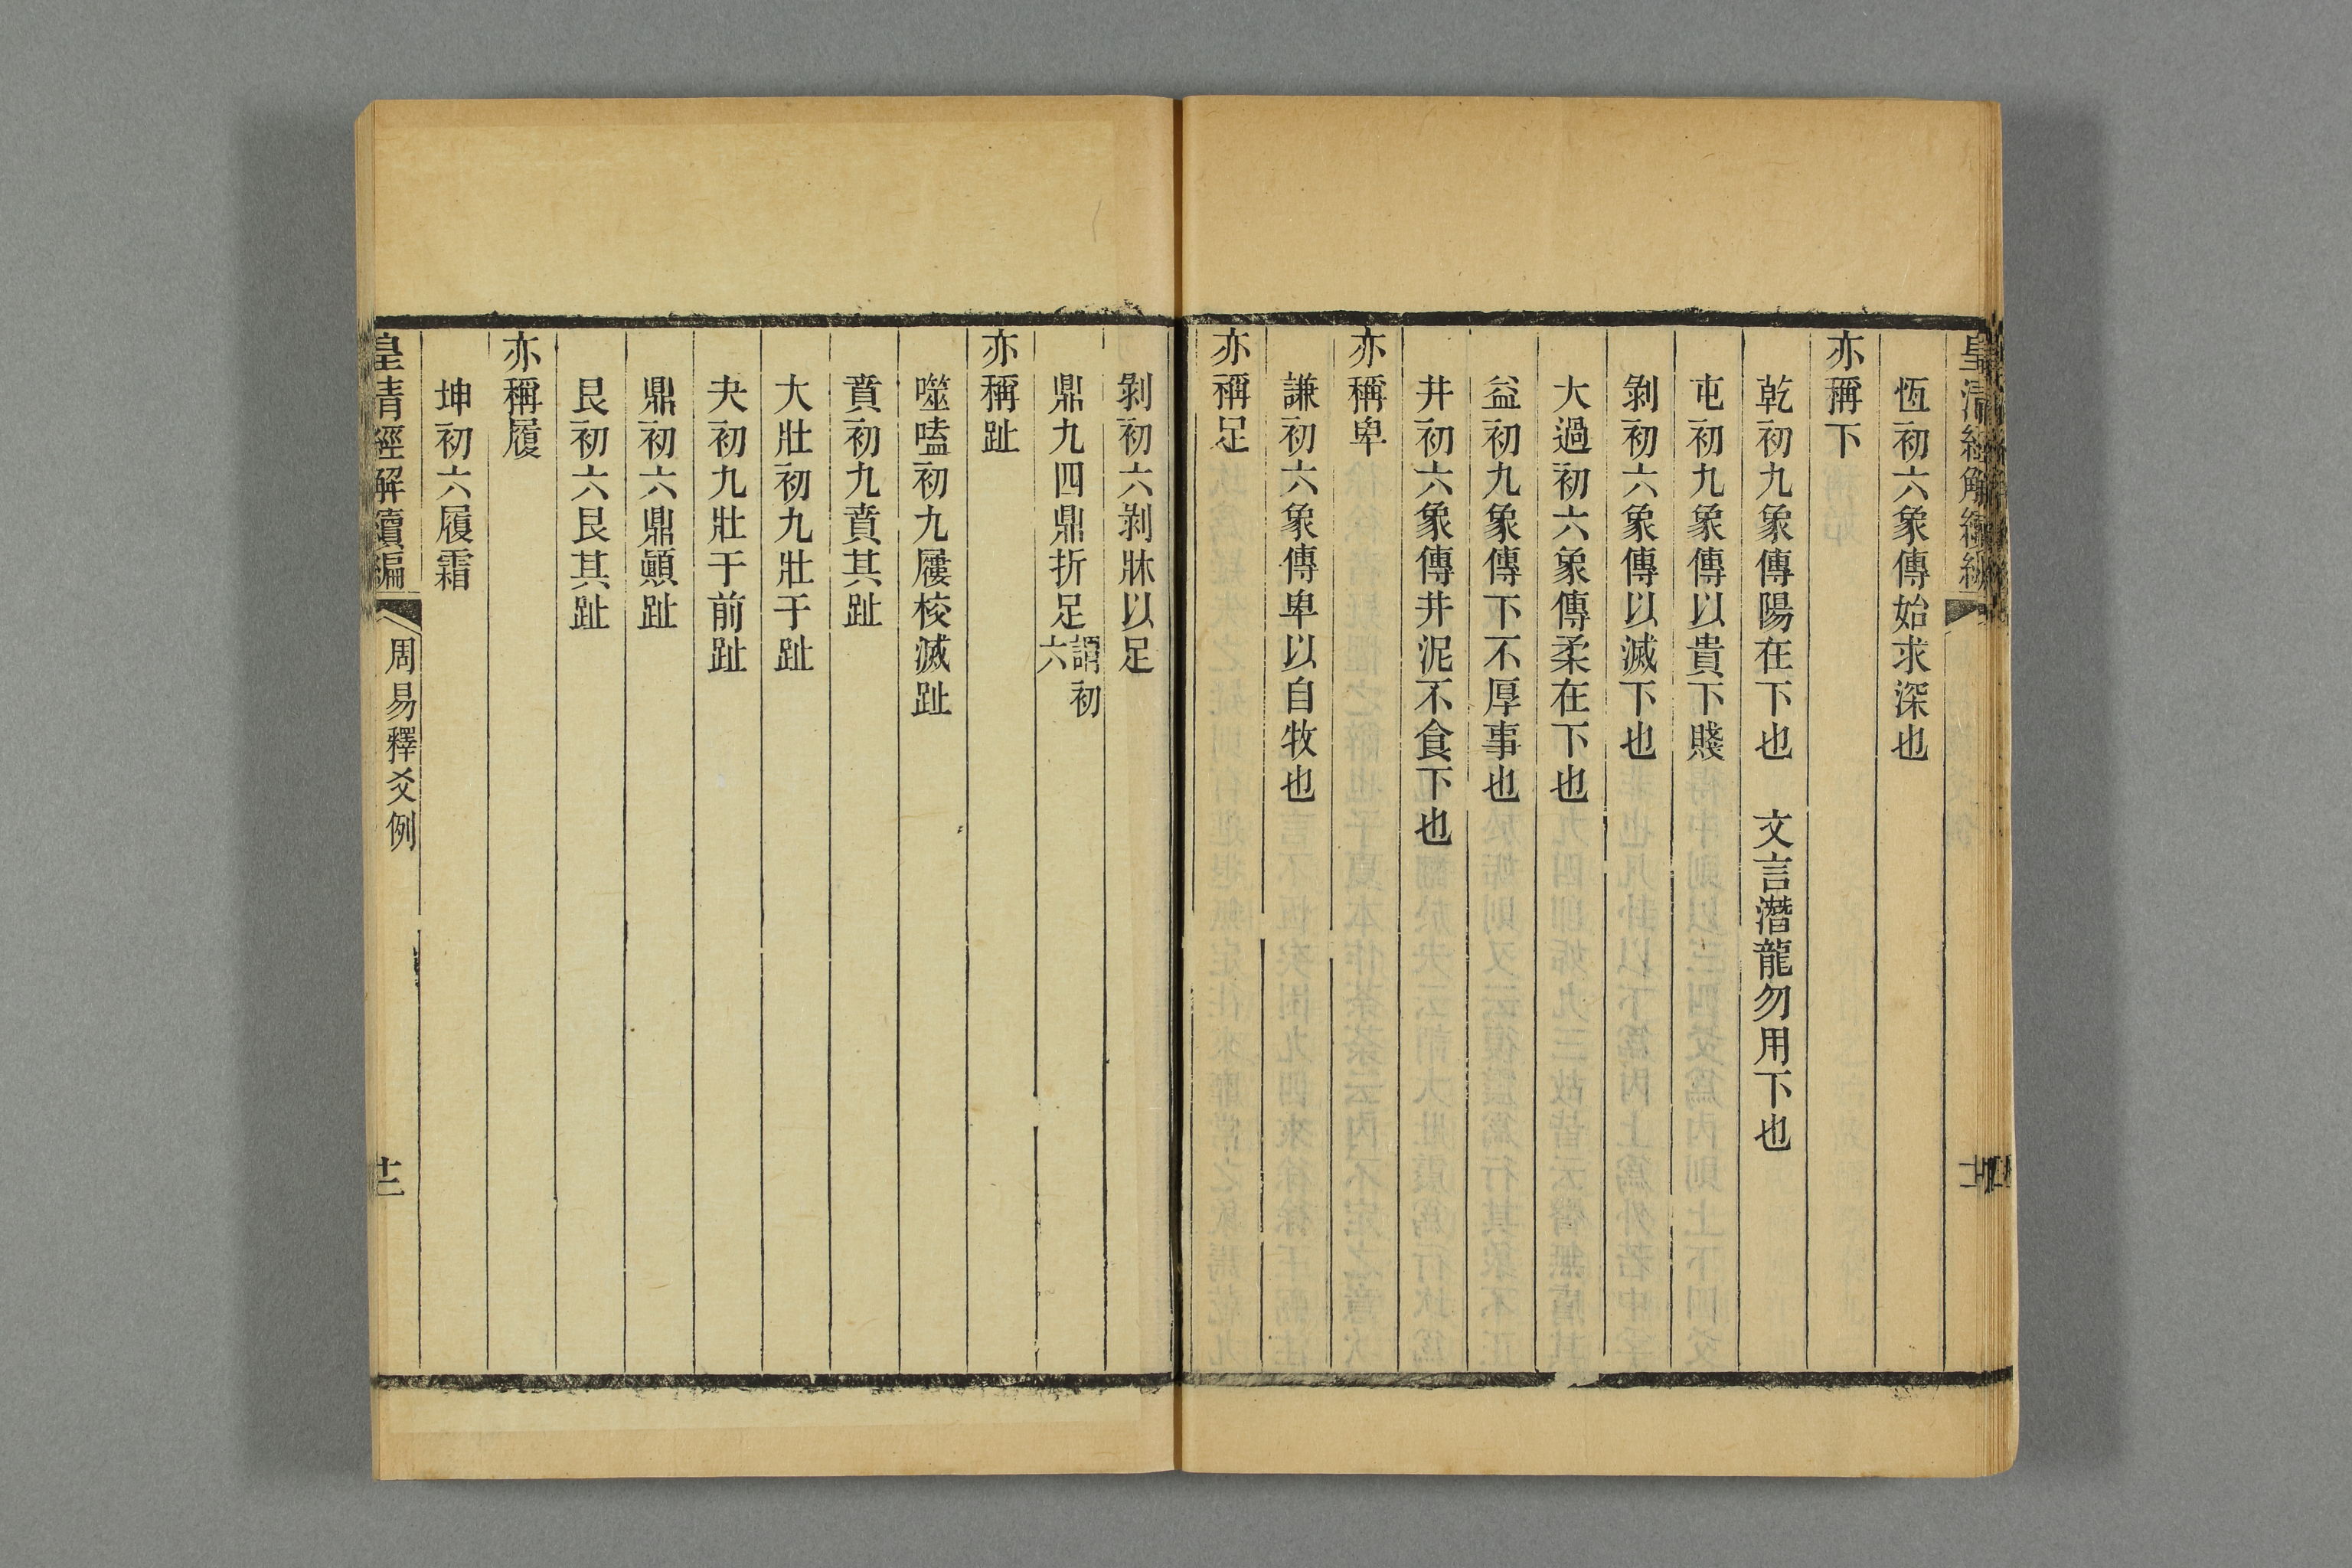 皇清經解續編
恆初六象傳始求深也
亦稱下
乾初九象傳陽在下也　文言潛龍勿用下也
屯初九象傳以貴下賤
剝初六象傳以滅下也
大過初六象傳柔在下也
益初九象傳下不厚事也
井初六象傳井泥不食下也
亦稱卑
謙初六象傳卑以自牧也
亦稱足
剝初六剝牀以足
鼎九四鼎折足謂初六
亦稱趾
噬嗑初九屨校滅趾
賁初九賁其趾
大壯初九壯于趾
夬初九壯于前趾
鼎初六鼎顚趾
艮初六艮其趾
亦稱履
坤初六履霜
皇清經解續編　周易釋爻例